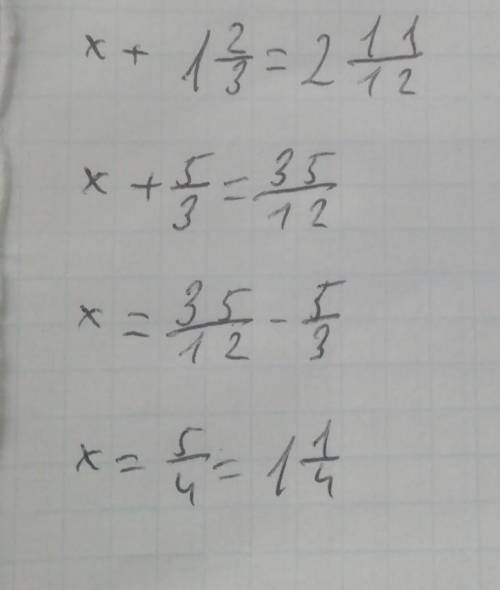 x + 1 2/3 = 2 11/12
x + 5/3 = 35/12
x = 35/12 - 5/3
x = 5/4 = 1 1/4